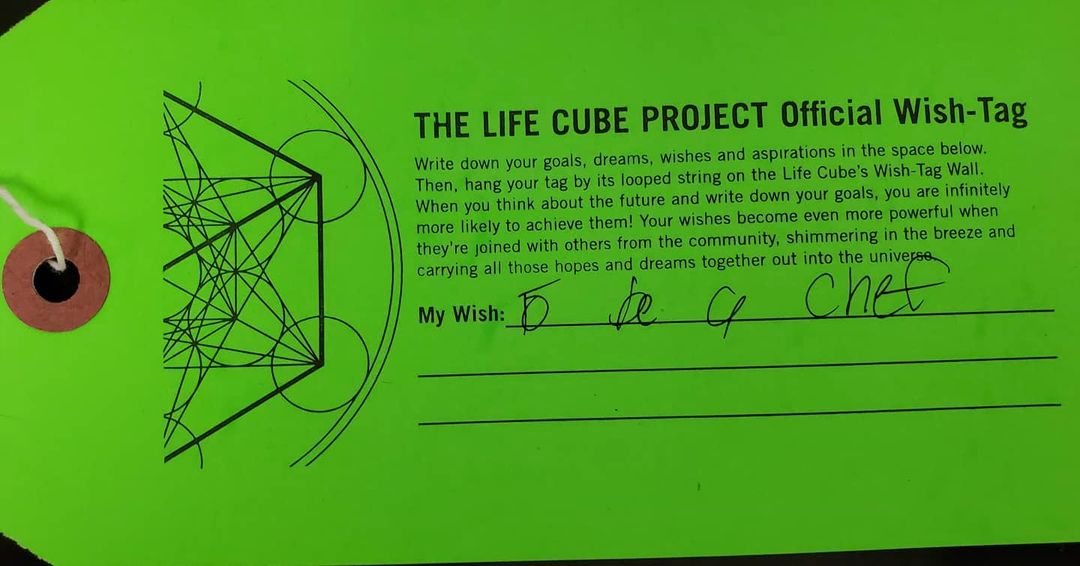 THE LIFE CUBE PROJECT Official Wish-Tag
Write down your goals, dreams, wishes and aspirations in the space below.
Then, hang your tag by its looped string on the Life Cube's Wish-Tag Wall.
When you think about the future and write down your goals, you are infinitely
more likely to achieve them! Your wishes become even more powerful when
they're joined with others from the community, shimmering in the breeze and
carrying all those hopes and dreams together out into the universe.
My Wish: To be a Chef